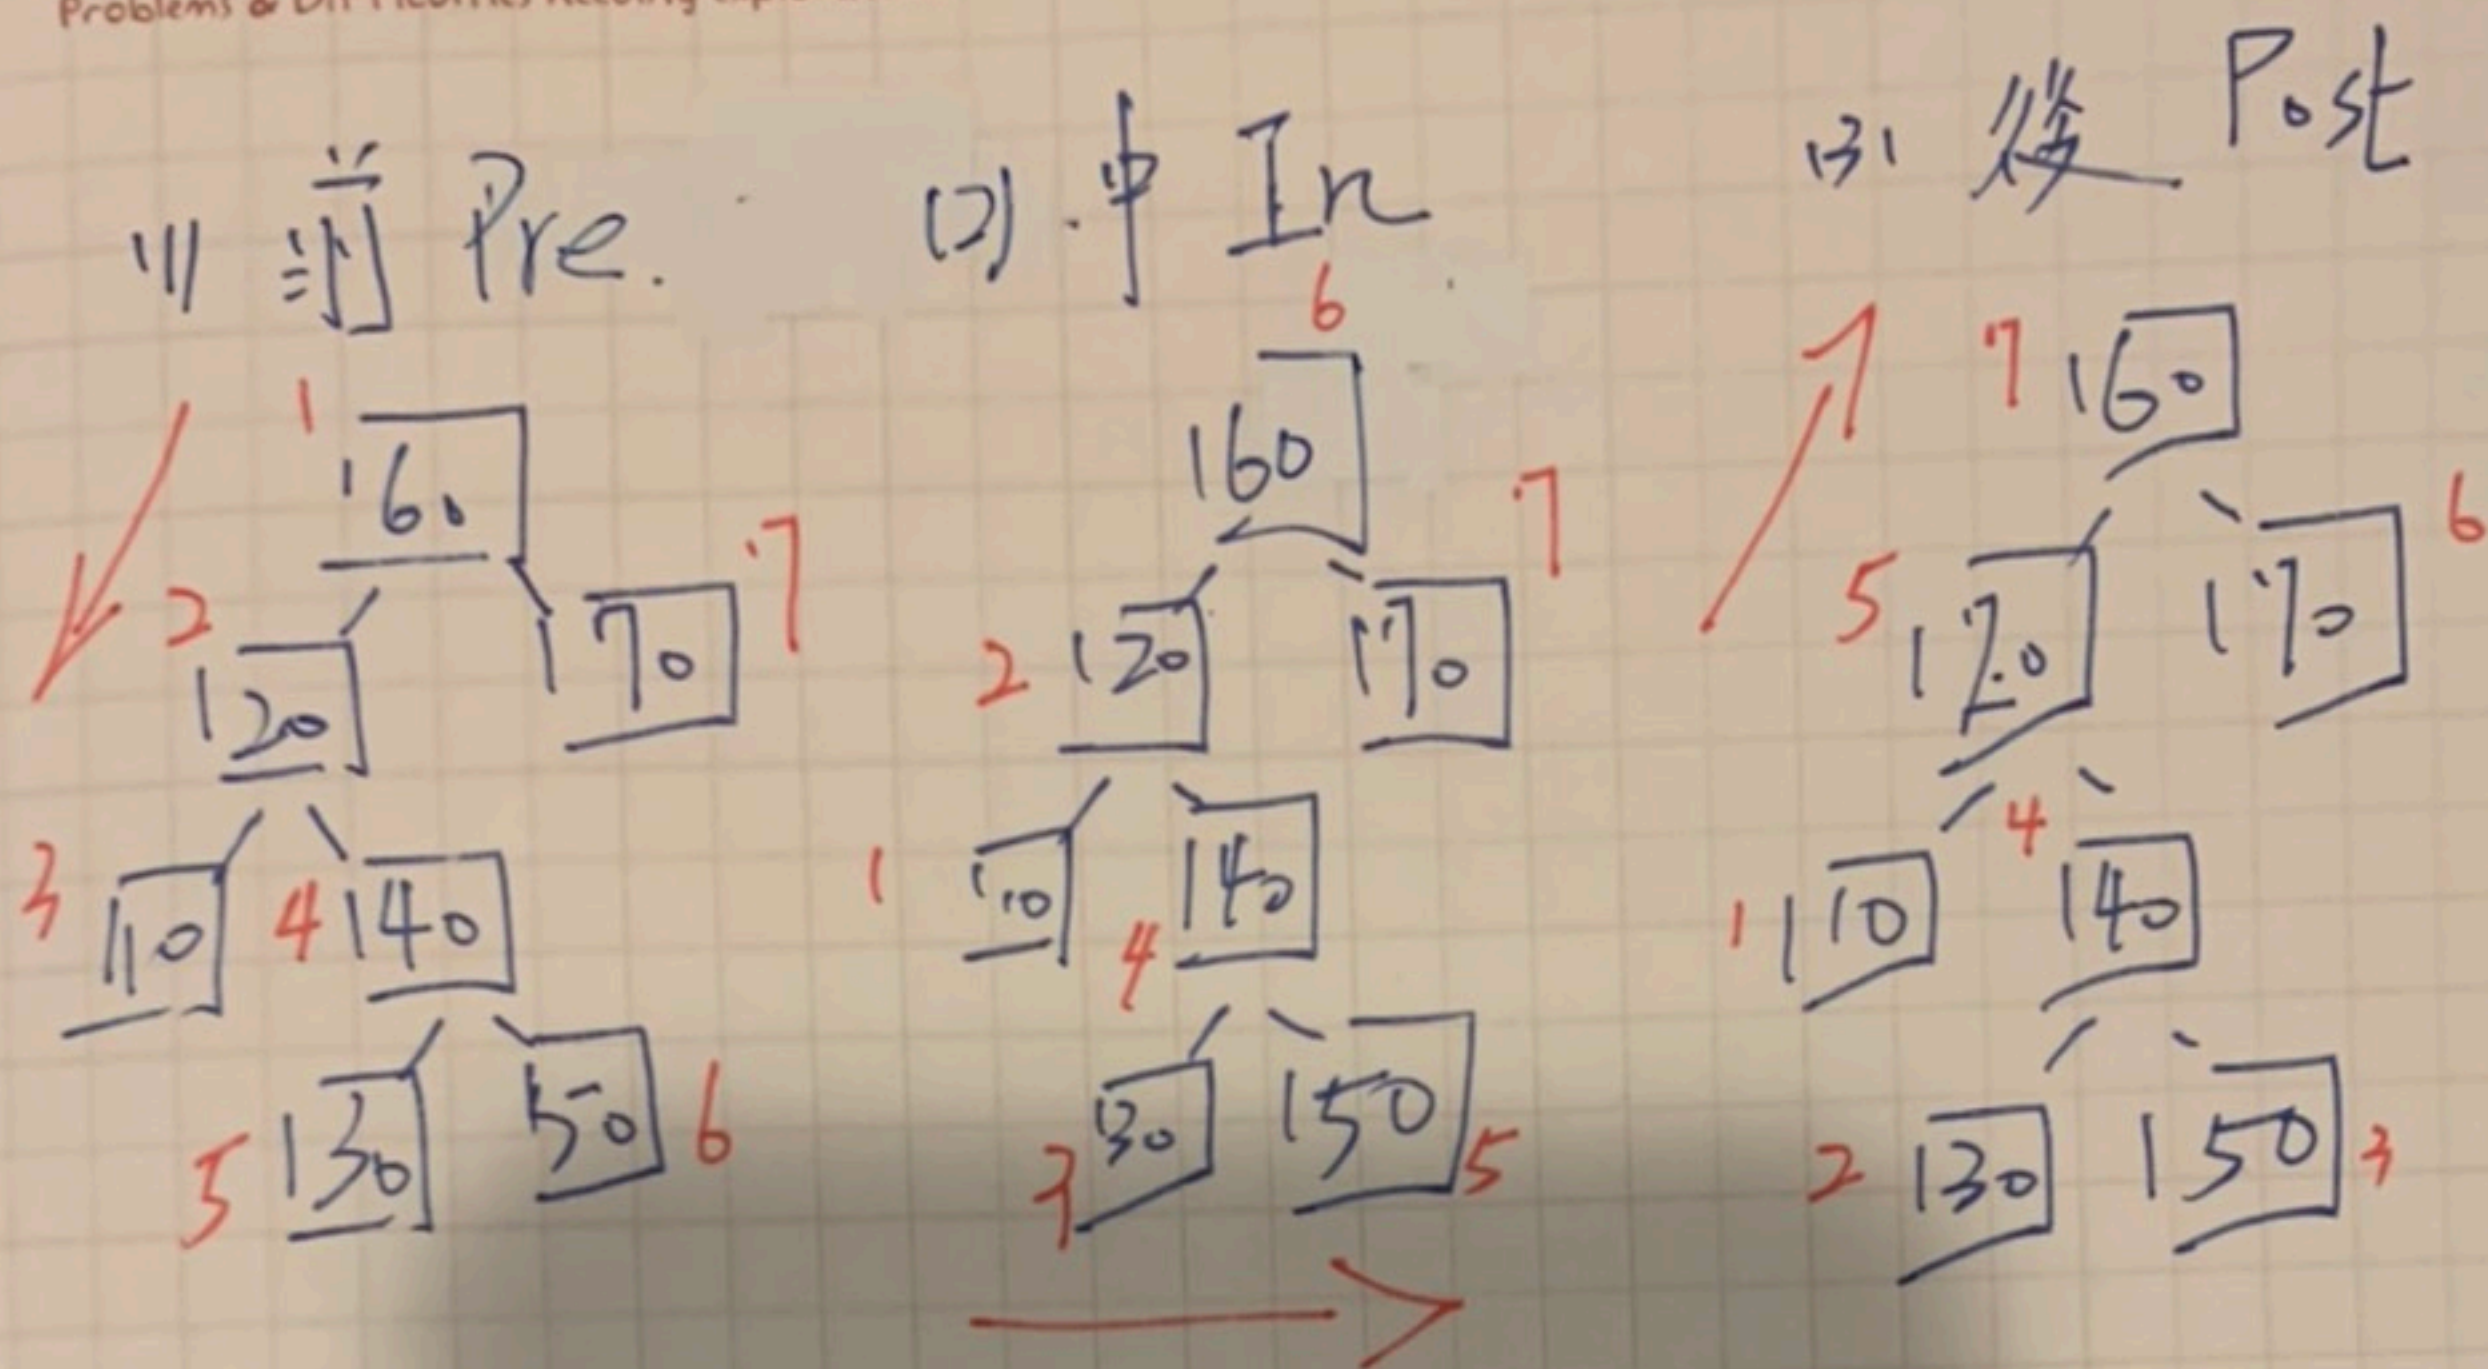 Problems &
(1) 前 Pre.
1
160
2
120
170
7
3
110
4
140
5
130
150
6
(2) 中 In
6
160
2
120
170
7
1
110
4
140
3
130
150
5
(3) 後 Post
7
160
5
120
170
6
1
110
4
140
2
130
150
3